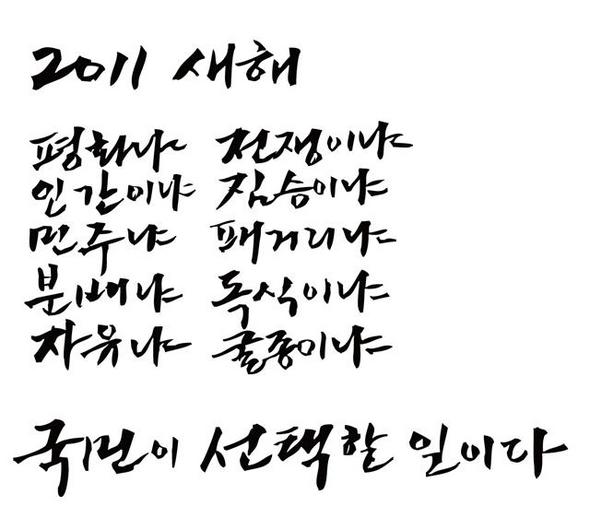 2011 새해
평화냐 전쟁이냐
인간이냐 짐승이냐
민주냐 패거리냐
분배냐 독식이냐
자유냐 굴종이냐
국민이 선택할 일이다